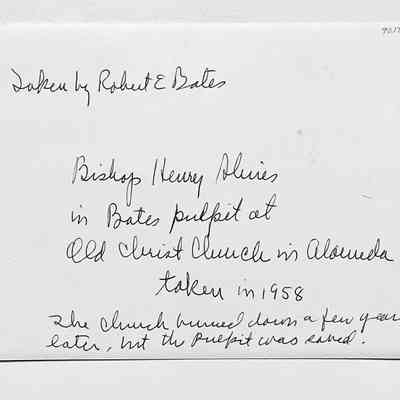 Taken by Robert E Bates
Bishop Henry Shires
in Bates pulpit at
Old Christ Church in Alameda
taken in 1958
The church burned down a few year
later, but the pulpit was saved.